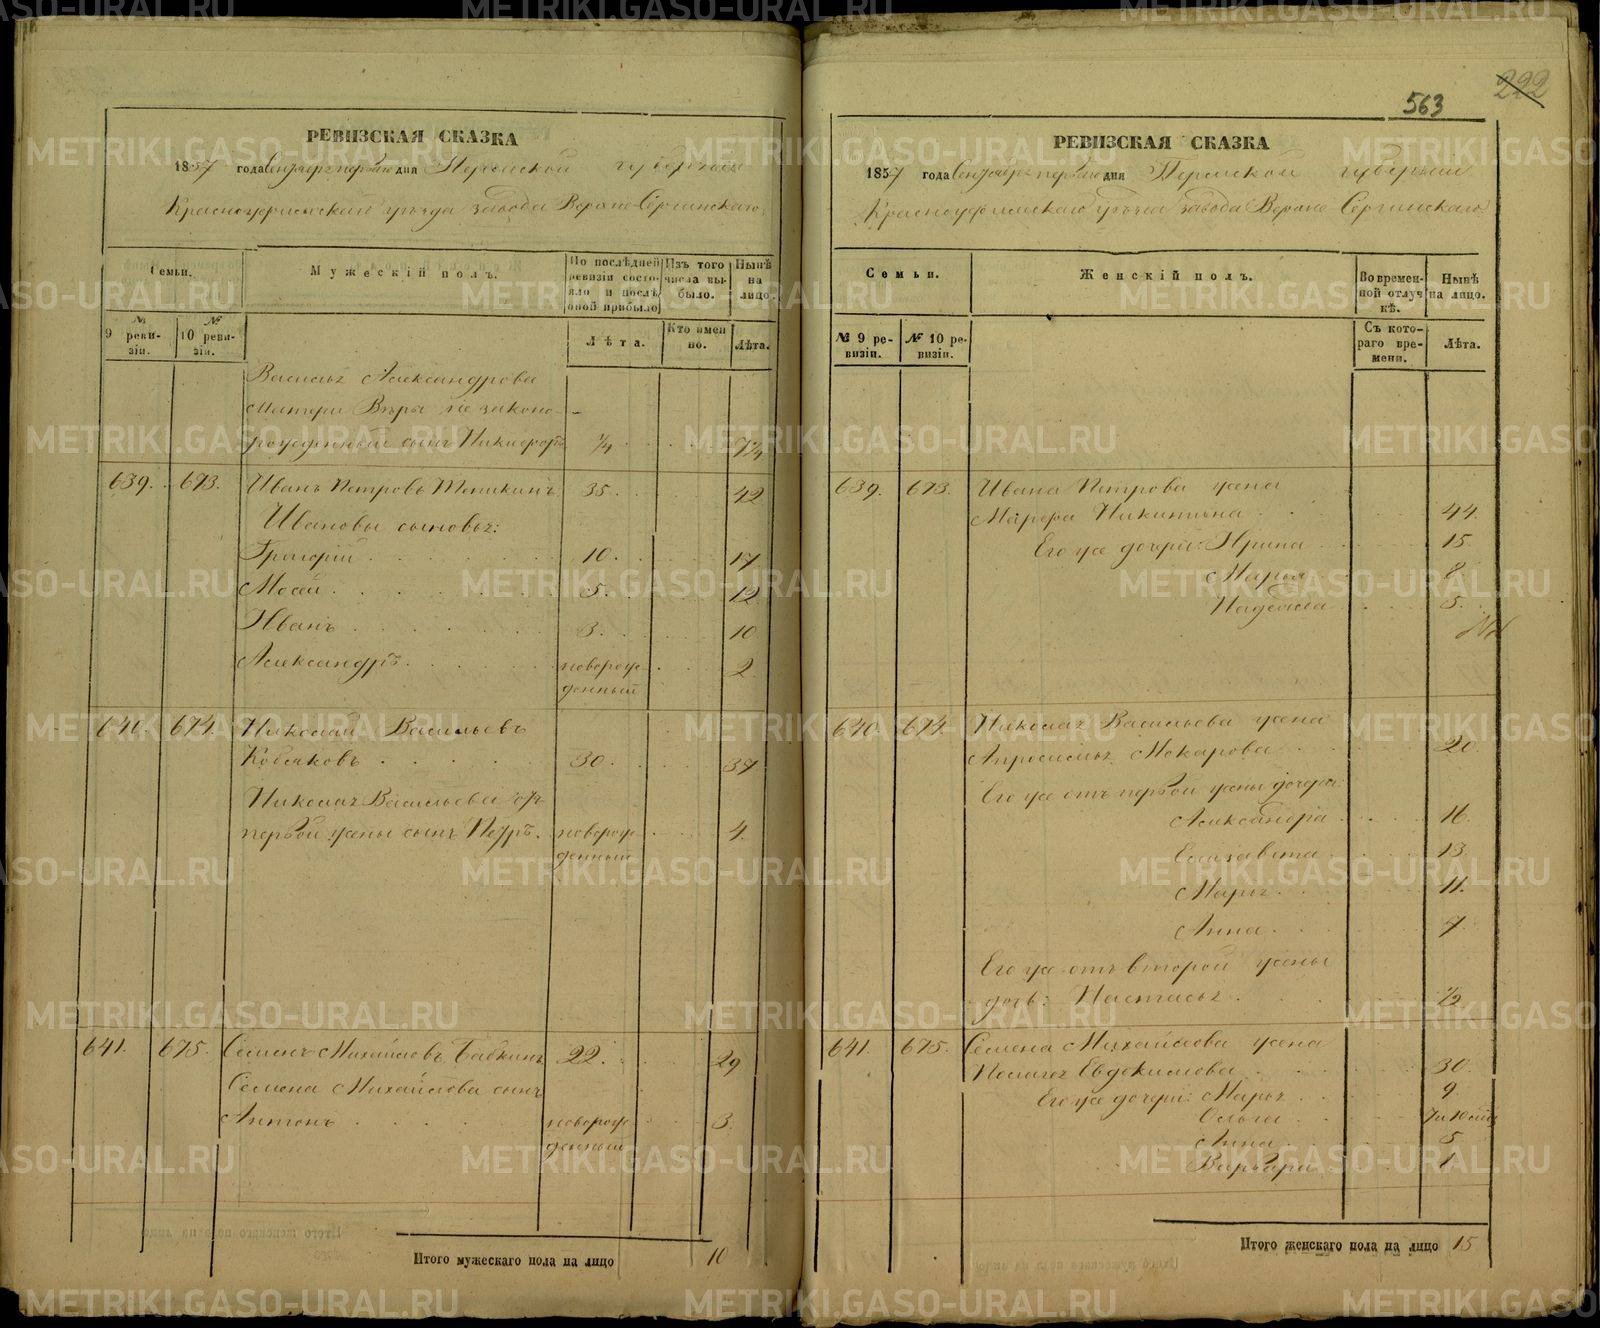 222
563
РЕВИЗСКАЯ СКАЗКА
1857 года Сентября первого дня Пермской губернiи
Красноуфимскаго уѣзда завода Верхне-Сергинскаго
Семьи.
Мужескiй полъ.
По послѣдней ревизiи состояло и послѣ оной прибыло
Изъ того числа выбыло.
Нынѣ на лицо.
№ 9 ревизiи.
№ 10 ревизiи.
Лѣта.
Кто именно.
Лѣта.
Василья Александрова
матери Вѣры не законно-
рожденный сынъ Никифоръ 1/4 7 1/4
639. 673. Иванъ Петровъ 35. 42
Ивановы сыновья:
Григорiй 10. 17
Мосей 5. 12
Иванъ 3. 10
Александръ новорож- 2
денный
640. 674. Николай Васильевъ
Кобяковъ 30. 37
Николая Васильева отъ
первой жены сынъ Петръ. новорож- 4
денный
641. 675. Семенъ Михайловъ Бабкинъ 22. 29
Семена Михайлова сынъ
Антонъ новорож- 3.
денный
Итого мужескаго пола на лицо 10
РЕВИЗСКАЯ СКАЗКА
1857 года Сентября первого дня Пермской губернiи
Красноуфимскаго уѣзда завода Верхне Сергинскаго
Семьи.
Женскiй полъ.
Во временной отлучкѣ.
Нынѣ на лицо.
№ 9 ревизiи.
№ 10 ревизiи.
Съ котораго времени.
Лѣта.
639. 673. Ивана Петрова жена
Марфа Никитина 44.
Его же дочери: Ирина 15.
Марья 8.
Надежда 5.
640. 674. Николая Васильева жена
Апросинья Макарова 20.
Его же отъ первой жены дочери:
Александра 16.
Елизавета 13.
Марья 11.
Анна 7.
Его же отъ второй жены
дочь: Настасья 1/2
641. 675. Семена Михайлова жена
Пелагея Евдокимова 30.
Его же дочери: Марья 9.
Ольга
Анна 5
Варвара 1.
Итого женскаго пола на лицо 15
METRIKI.GASO-URAL.RU